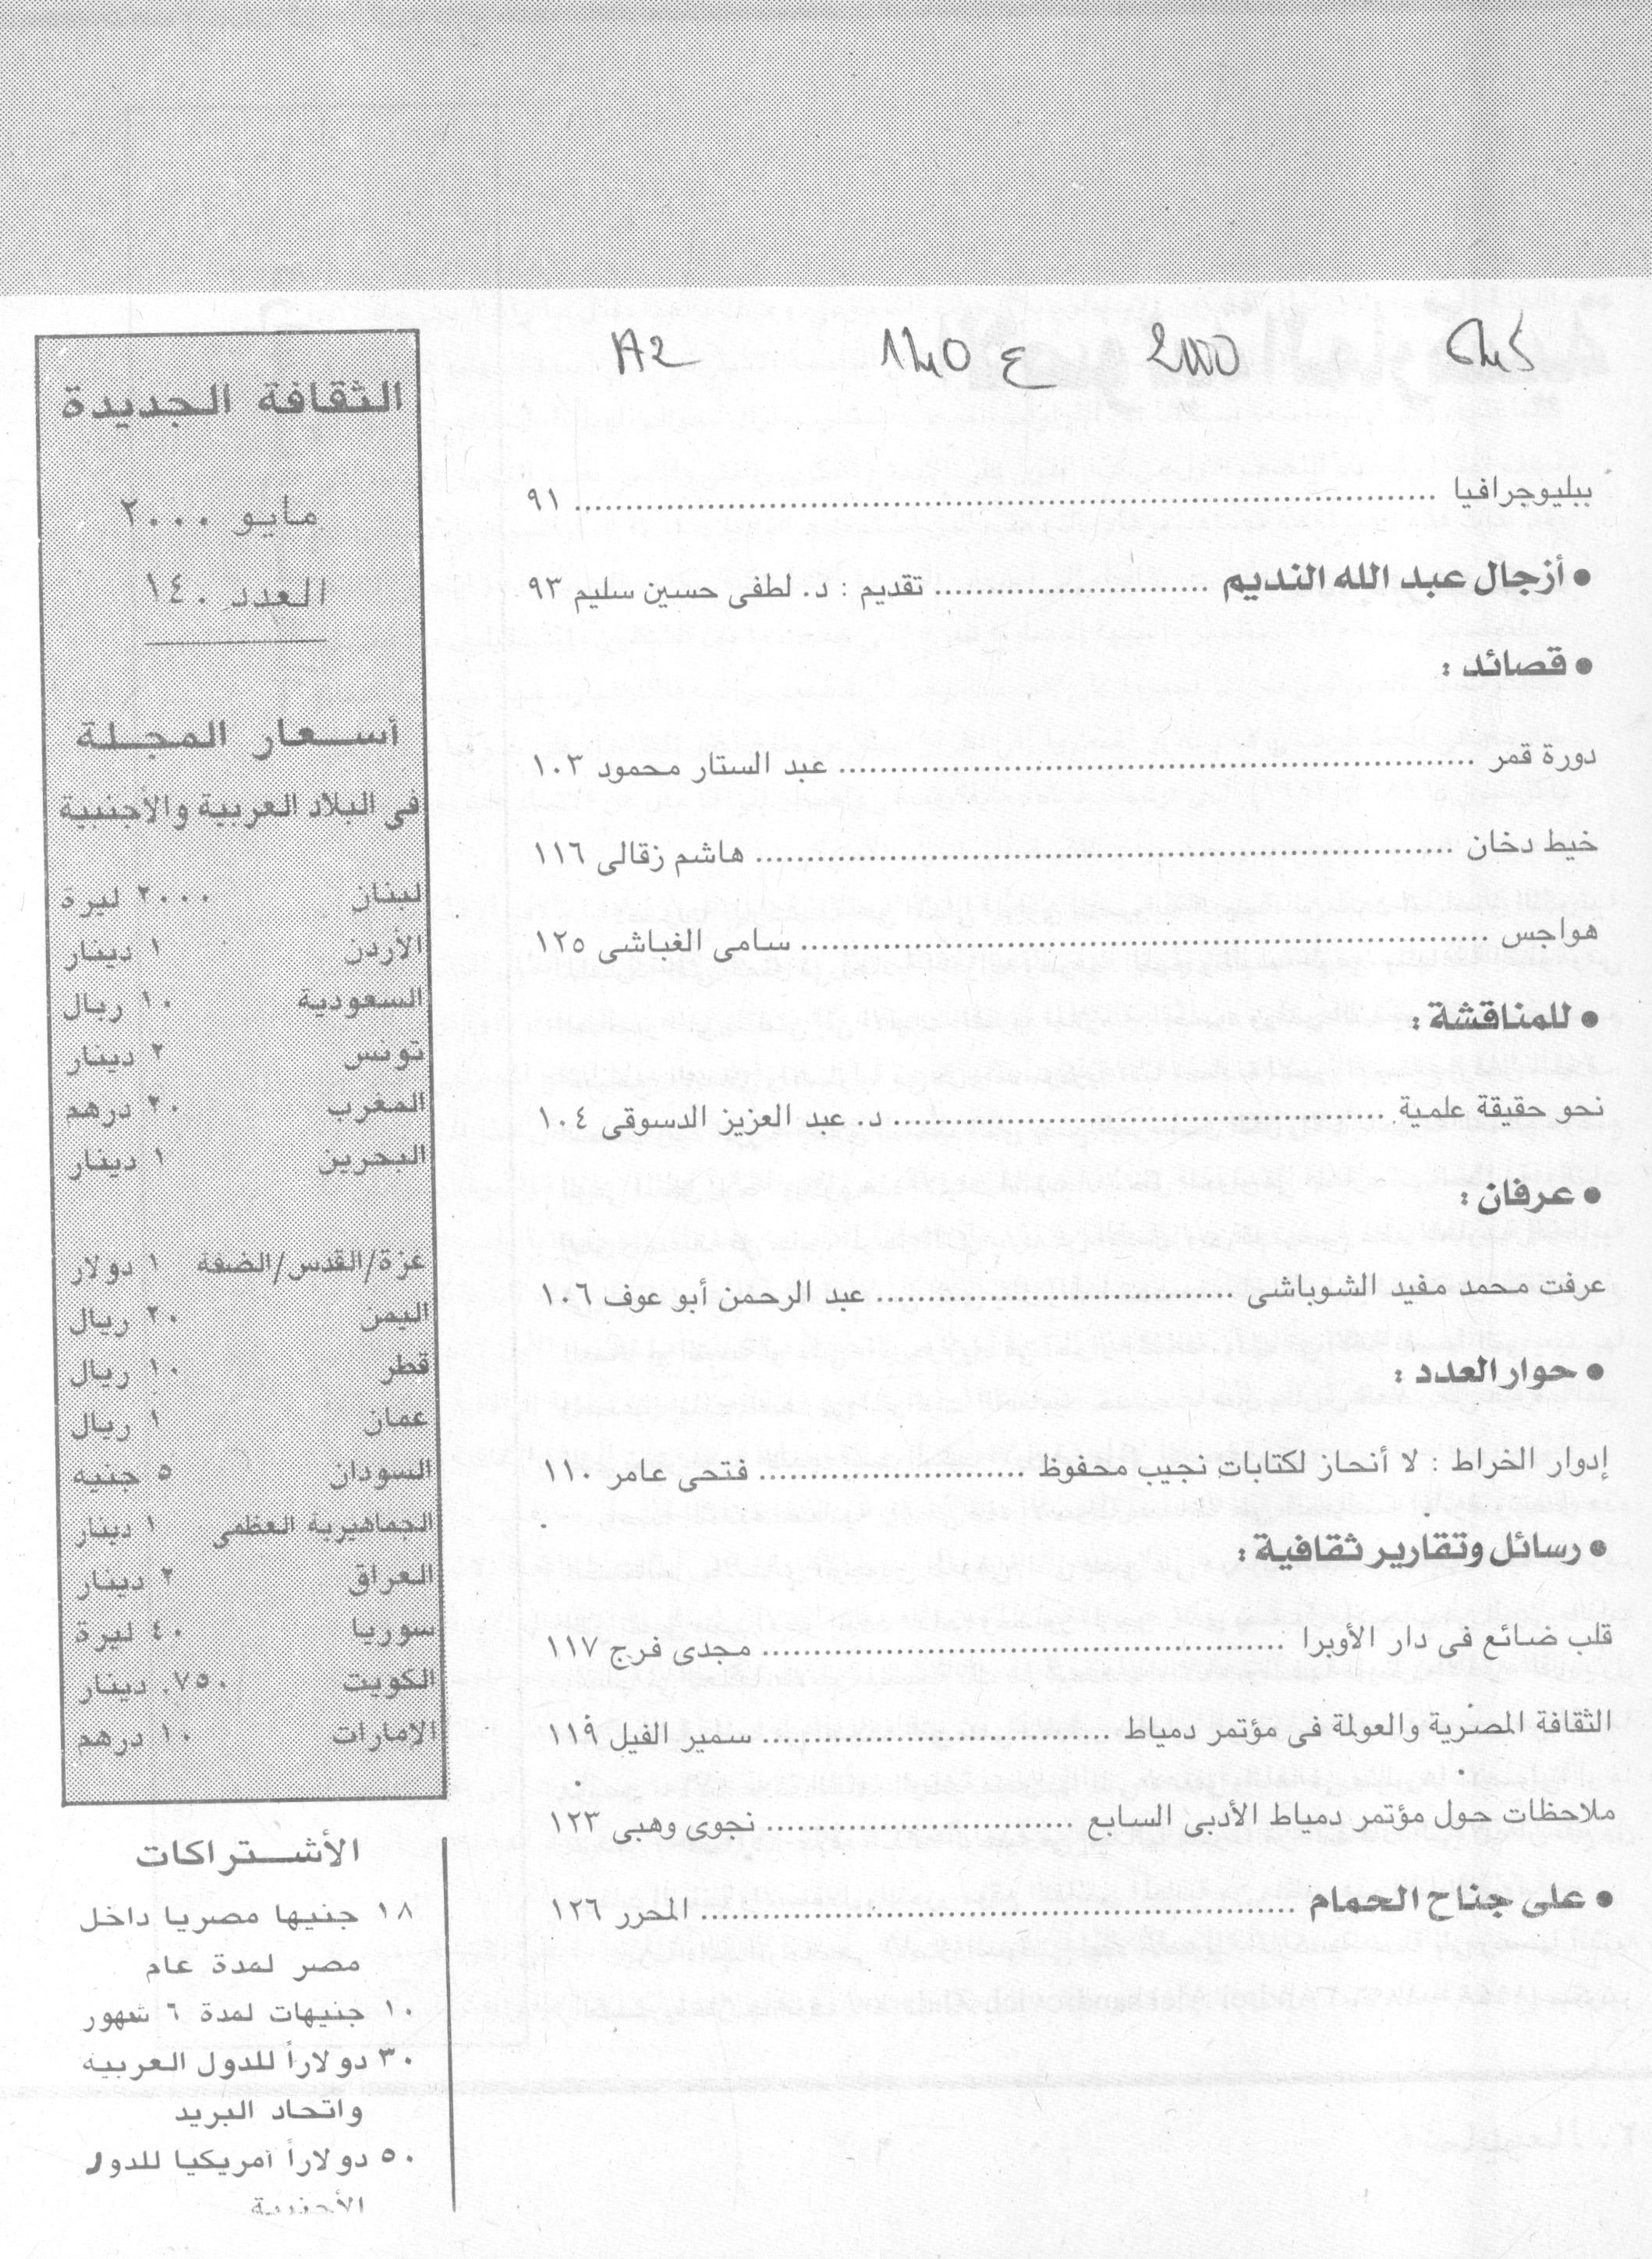 A2 140 ع 2000
ببليوجرافيا ........................................ ٩١
● أزجال عبد الله النديم .......................... تقديم : د. لطفى حسين سليم ٩٣
● قصائد :
دورة قمر ........................................ عبد الستار محمود ١٠٣
خيط دخان ........................................ هاشم زقالى ١١٦
هواجس ........................................ سامى الغباشى ١٢٥
● للمناقشة :
نحو حقيقة علمية ........................................ د. عبد العزيز الدسوقى ١٠٤
● عرفان :
عرفت محمد مفيد الشوباشى .................................. عبد الرحمن أبو عوف ١٠٦
● حوار العدد :
إدوار الخراط : لا أنحاز لكتابات نجيب محفوظ .......................... فتحى عامر ١١٠
● رسائل وتقارير ثقافية :
قلب ضائع فى دار الأوبرا ........................................ مجدى فرج ١١٧
الثقافة المصرية والعولمة فى مؤتمر دمياط .................................. سمير الفيل ١١٩
ملاحظات حول مؤتمر دمياط الأدبى السابع .............................. نجوى وهبى ١٢٣
● على جناح الحمام ........................................ المحرر ١٢٦
الثقافة الجديدة
مايو ٢٠٠٠
العدد ١٤٠
أسـعار المجـلة
فى البلاد العربية والأجنبية
لبنان ٢٠٠٠ ليرة
الأردن ١ دينار
السعودية ١٠ ريال
تونس ٢ دينار
المغرب ٢٠ درهم
البحرين ١ دينار
غزة/القدس/الضفة ١ دولار
اليمن ٢٠ ريال
قطر ١٠ ريال
عمان ١ ريال
السودان ٥ جنيه
الجماهيرية العظمى ١ دينار
العراق ٢ دينار
سوريا ٤٠ ليرة
الكويت ٧٥٠. دينار
الامارات ١٠ درهم
الأشـتراكات
١٨ جنيها مصريا داخل
مصر لمدة عام
١٠ جنيهات لمدة ٦ شهور
٣٠ دولاراً للدول العربية
واتحاد البريد
٥٠ دولاراً أمريكيا للدول
الأجنبية